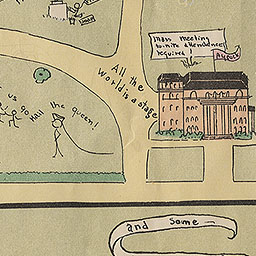 mass meeting
to-nite attendance
required!
All the
world is a stage
us go
Hail the queen!
and some—